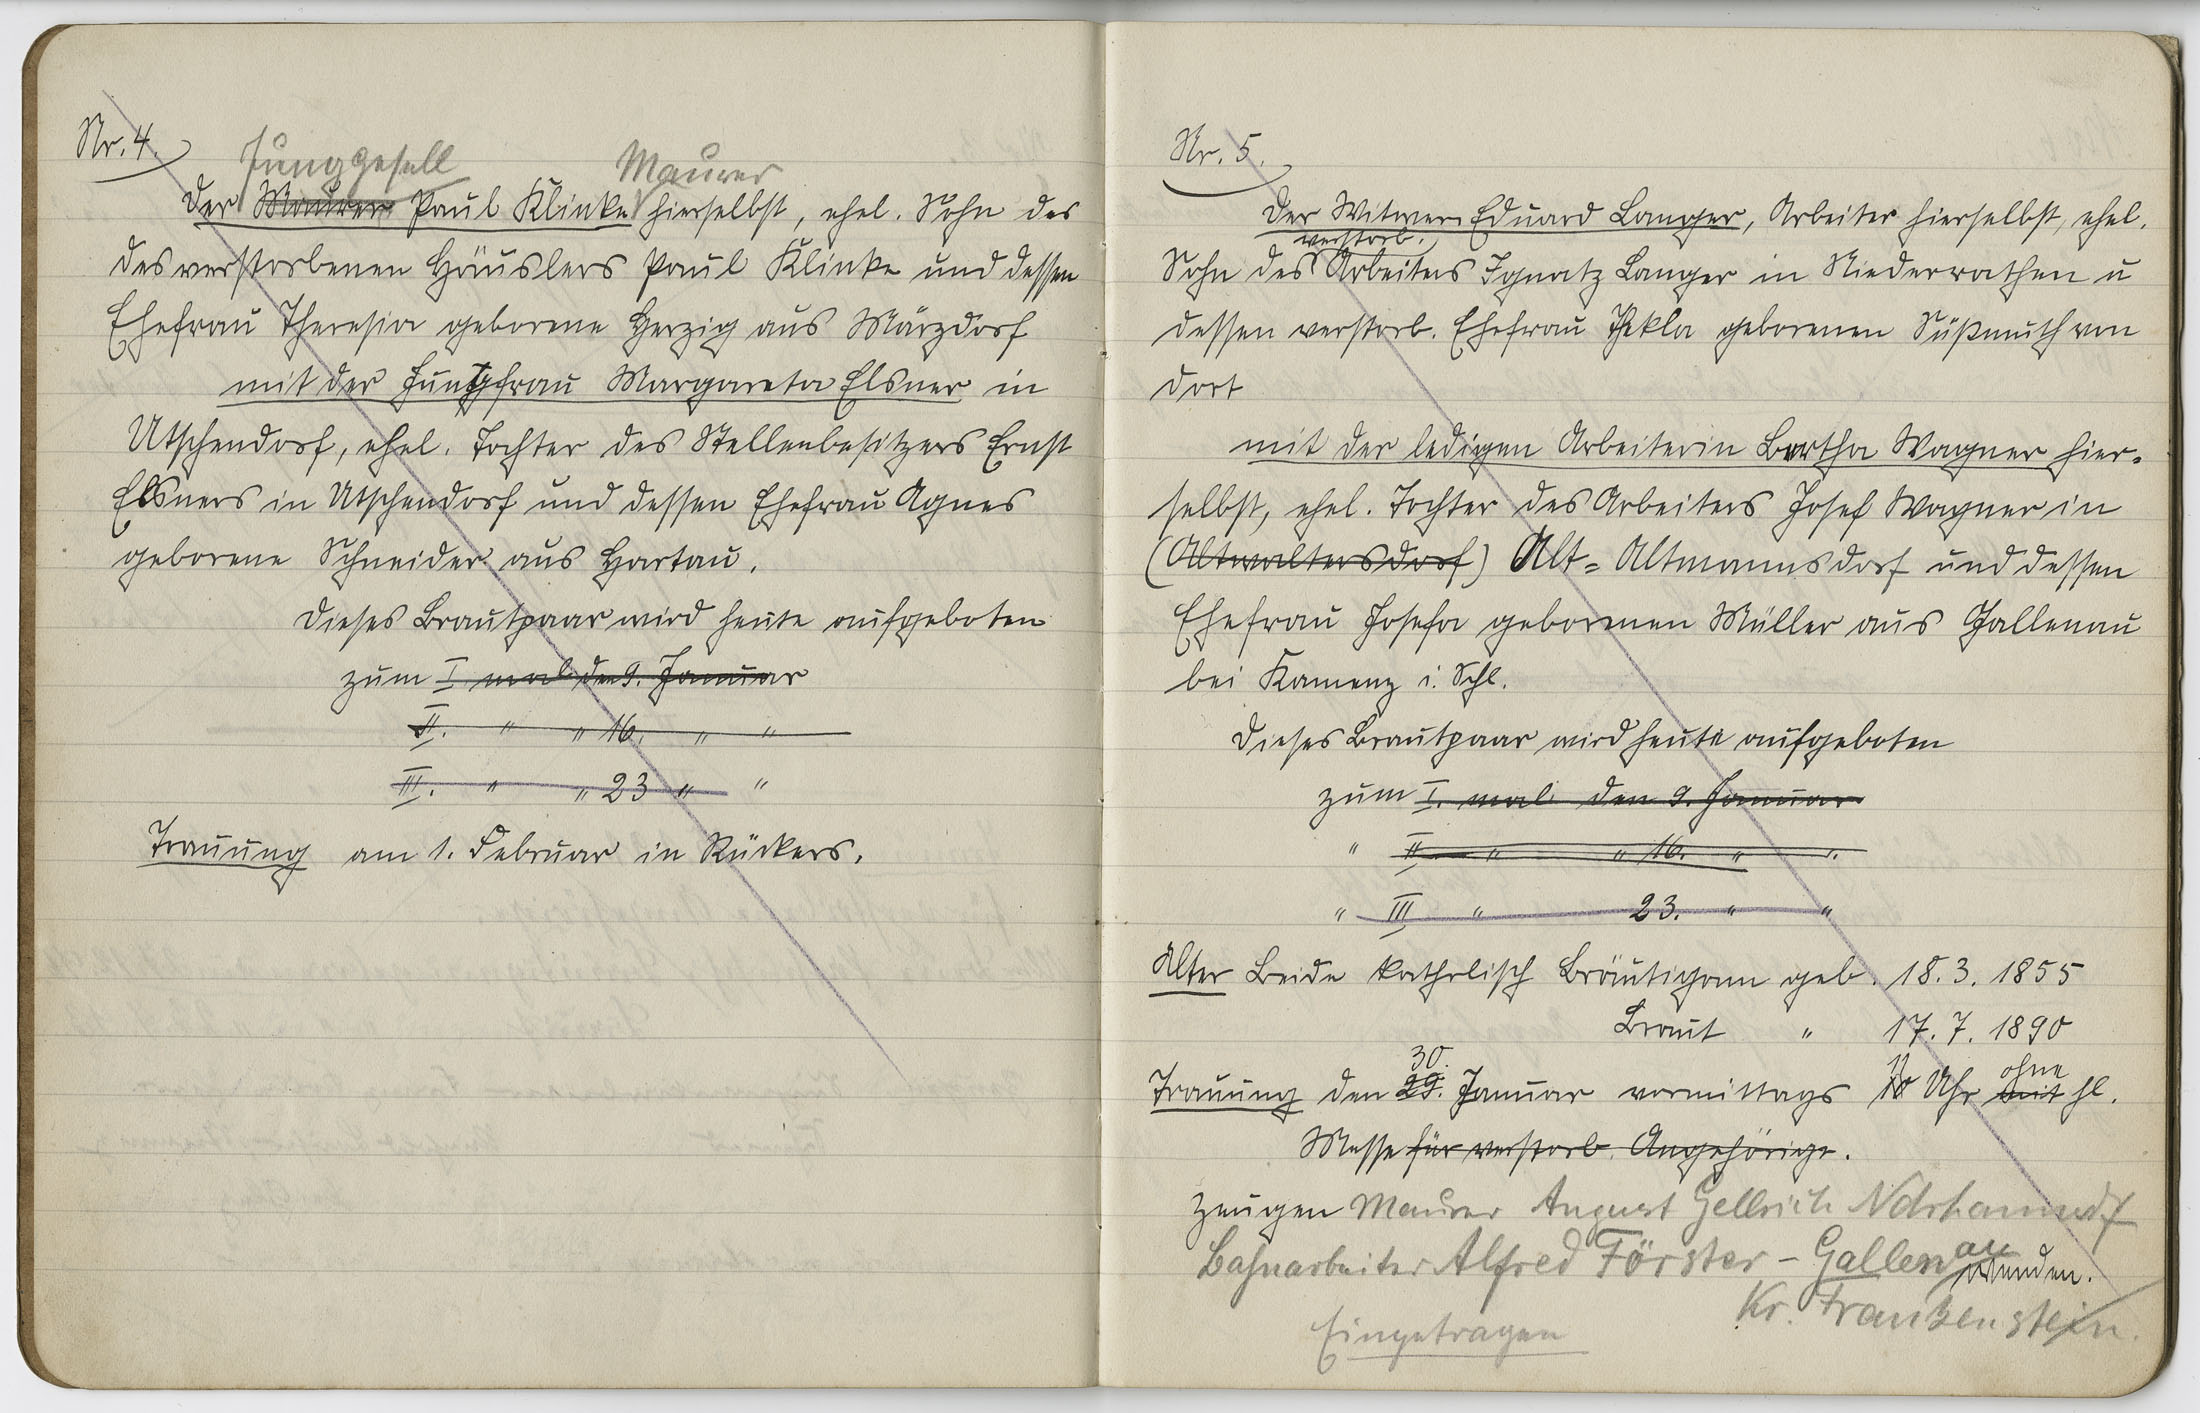 Nr. 4.
Junggesell Maurer
Der Maurer Paul Klinke hierselbst, ehel. Sohn des
des verstorbenen Häuslers Paul Klinke und dessen
Ehefrau Theresia geborene Herzig aus Märzdorf
mit der Jungfrau Margareta Elsner in
Utschendorf, ehel. Tochter des Stellenbesitzers Ernst
Elsners in Utschendorf und dessen Ehefrau Agnes
geborene Schneider aus Hartau.
Dieses Brautpaar wird heute aufgeboten
zum I mal den 9. Januar
II. " " 16. " "
III. " " 23 " "
Trauung am 1. Februar in Rückers.
Nr. 5.
Der Witwer Eduard Langer, Arbeiter hierselbst, ehel.
verstorb.
Sohn des Arbeiters Ignatz Langer in Niederrathen u
dessen verstorb. Ehefrau Thekla geborenen Süßmuth von
dort
mit der ledigen Arbeiterin Bertha Wagner hier-
selbst, ehel. Tochter des Arbeiters Josef Wagner in
(Altwaltersdorf) Alt-Altmannsdorf und dessen
Ehefrau Josefa geborenen Müller aus Gallenau
bei Kamenz i. Schl.
Dieses Brautpaar wird heute aufgeboten
zum I. mal den 9. Januar
" II. " " 16. " "
" III " 23. " "
Alter Beide katholisch Bräutigam geb. 18.3.1855
Braut " 17.7.1890
30. 11 ohne
Trauung den 29. Januar vormittags 10 Uhr mit hl.
Messe für verstorb. Angehörige.
Zeugen Maurer August Gellrich Ndrhannsdf
Bahnarbeiter Alfred Förster - Gallenau
Kr. Frankenstein.
Eingetragen